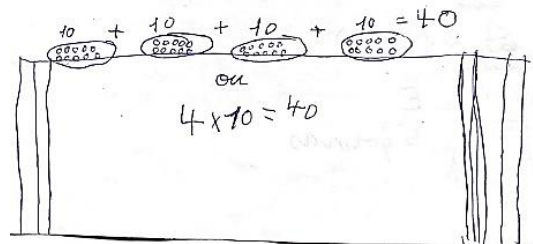 10 + 10 + 10 + 10 = 40
ou
4 x 10 = 40